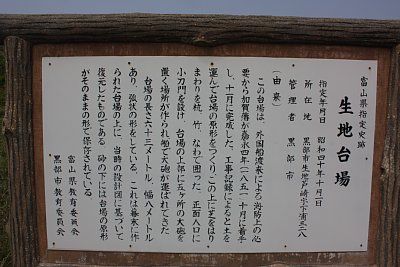 富山県指定史跡
生地台場
指定年月日　昭和四十年十月一日
所在地　黒部市生地芦崎字下浦三二八
管理者　黒部市
（由来）
この台場は、外国船渡来による海防上の必
要から加賀藩が嘉永四年（一八五一）十月に着手
し、十一月に完成した。工事記録によると土を
運んで台場の原形をつくり、この上に芝をはり
まわりを杭、竹、なわで囲った。正面入口に
小刀門を設け、台場の上部に五ヶ所の大砲を
置く場所が作られ姫で大砲が運ばれてきた。
台場の長さ六十三メートル　幅八メートル
あり、弦状の形をしている。これは幕末に作
られた台場の上に、当時の設計図に基づいて
復元したものである。砂の下には台場の原形
がそのままの形で保存されている。
富山県教育委員会
黒部市教育委員会